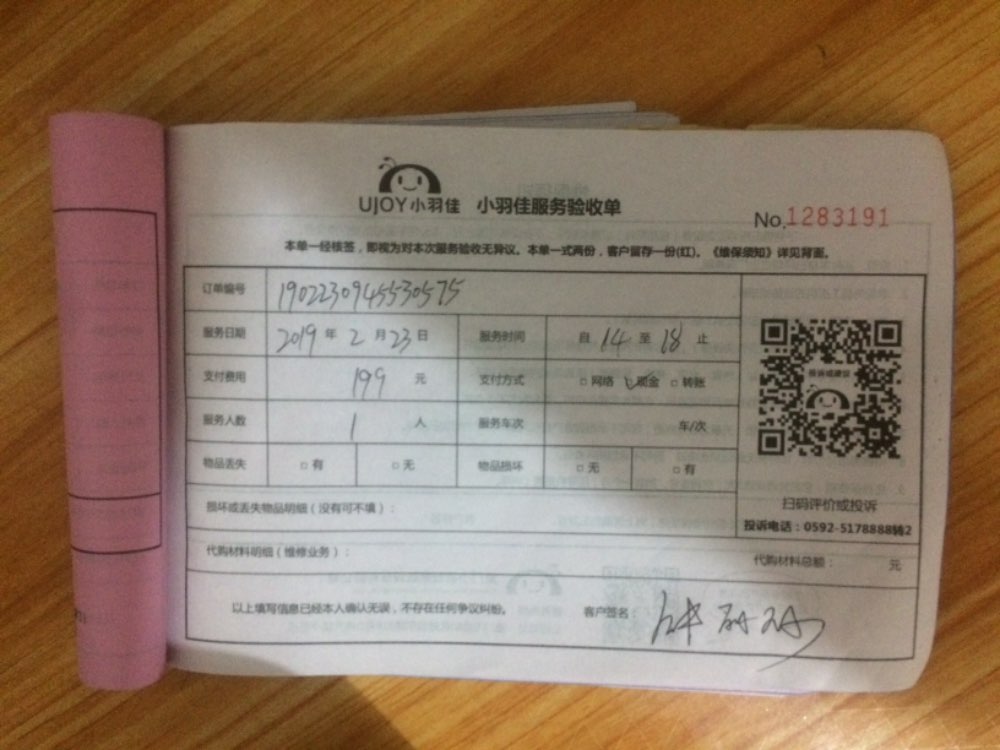 UJOY小羽佳 小羽佳服务验收单
No.1283191
本单一经核签，即视为对本次服务验收无异议。本单一式两份，客户留存一份(红)。《维保须知》详见背面。
订单编号 1902230945530575
服务日期 2019 年 2 月 23 日 服务时间 自 14 至 18 止
支付费用 199 元 支付方式 □网络 ☑现金 □转账
投诉或建议
服务人数 1 人 服务车次 车/次
物品丢失 □有 □无 物品损坏 □无 □有
扫码评价或投诉
损坏或丢失物品明细（没有可不填）：
投诉电话：0592-5178888转2
代购材料明细（维修业务）： 代购材料总额： 元
以上填写信息已经本人确认无误，不存在任何争议纠纷。 客户签名：